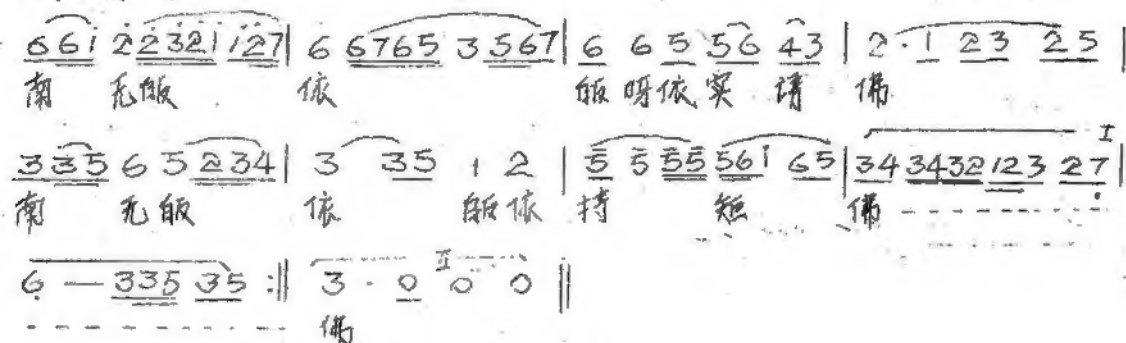 6 6 i 2 2 3 2 1 i 2 7 | 6 6 7 6 5 3 5 6 7 | 6 6 5 5 6 4 3 | 2 · 1 2 3 2 5 |
南 无皈 依 皈 呀依 实 请 佛
3 3 5 6 5 2 3 4 | 3 3 5 1 2 | 5 5 5 5 5 6 i 6 5 | 3 4 3 4 3 2 1 2 3 2 7 | I
南 无皈 依 皈依 持 短 佛
6 — 3 3 5 3 5 :‖ 3 · 0 0 0 ‖ II
佛